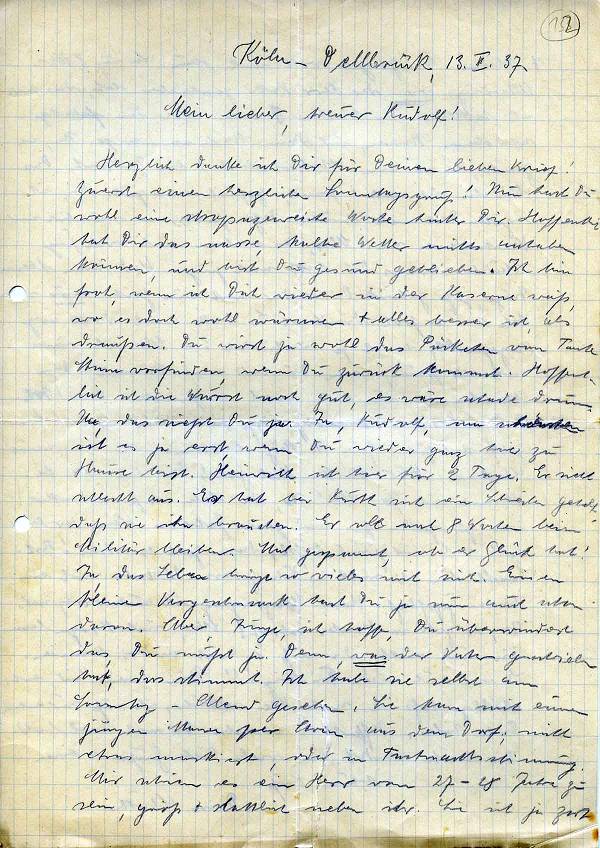 12
Köln-Dellbrück, 13. II. 37.
Mein lieber, treuer Rudolf!
Herzlich danke ich Dir für Deinen lieben Brief!
Zuerst einen herzlichen Sonntagsgruß! Nun hast Du
wohl eine strapazenreiche Woche hinter Dir. Hoffentlich
hat Dir das nasse, kalte Wetter nichts anhaben
können, und bist Du gesund geblieben. Ich bin
froh, wenn ich Dich wieder in der Kaserne weiß,
wo es doch wohl wärmer + alles besser ist, als
draußen. Du wirst ja wohl das Päckchen von Tante
vorfinden wenn Du zurück kommst. Hoffent-
lich ist die Wurst noch gut, es wäre schade drum.
Na, das siehst Du ja. Ja, Rudolf, am schönsten
ist es ja erst, wenn Du wieder ganz hier zu
Hause bist. Heinrich ist hier für 2 Tage. Er sieht
schlecht aus. Er hat bei sich ein geholt,
daß sie ihn brauchen. Er will nach 8 Wochen beim
Militär bleiben. Mal gespannt, ob er Glück hat!
Ja, das Leben bringt so vieles mit sich. Einen
kleinen Vorgeschmack hast Du ja nun auch schon
davon. Aber, Junge, ich hoffe, Du überwindest
das, Du mußt ja. Denn, was der Vater geschrieben
hat, das stimmt. Ich habe sie selbst am
Sonntag-Abend gesehen. Sie kam mit einem
jungen Manne per Arm aus dem Dorf, nicht
etwa maskiert, oder in Fastnachtsstimmung.
Mir schien es ein Herr von 27-28 Jahre zu
sein, groß + stattlich neben ihr. Sie ist ja zart